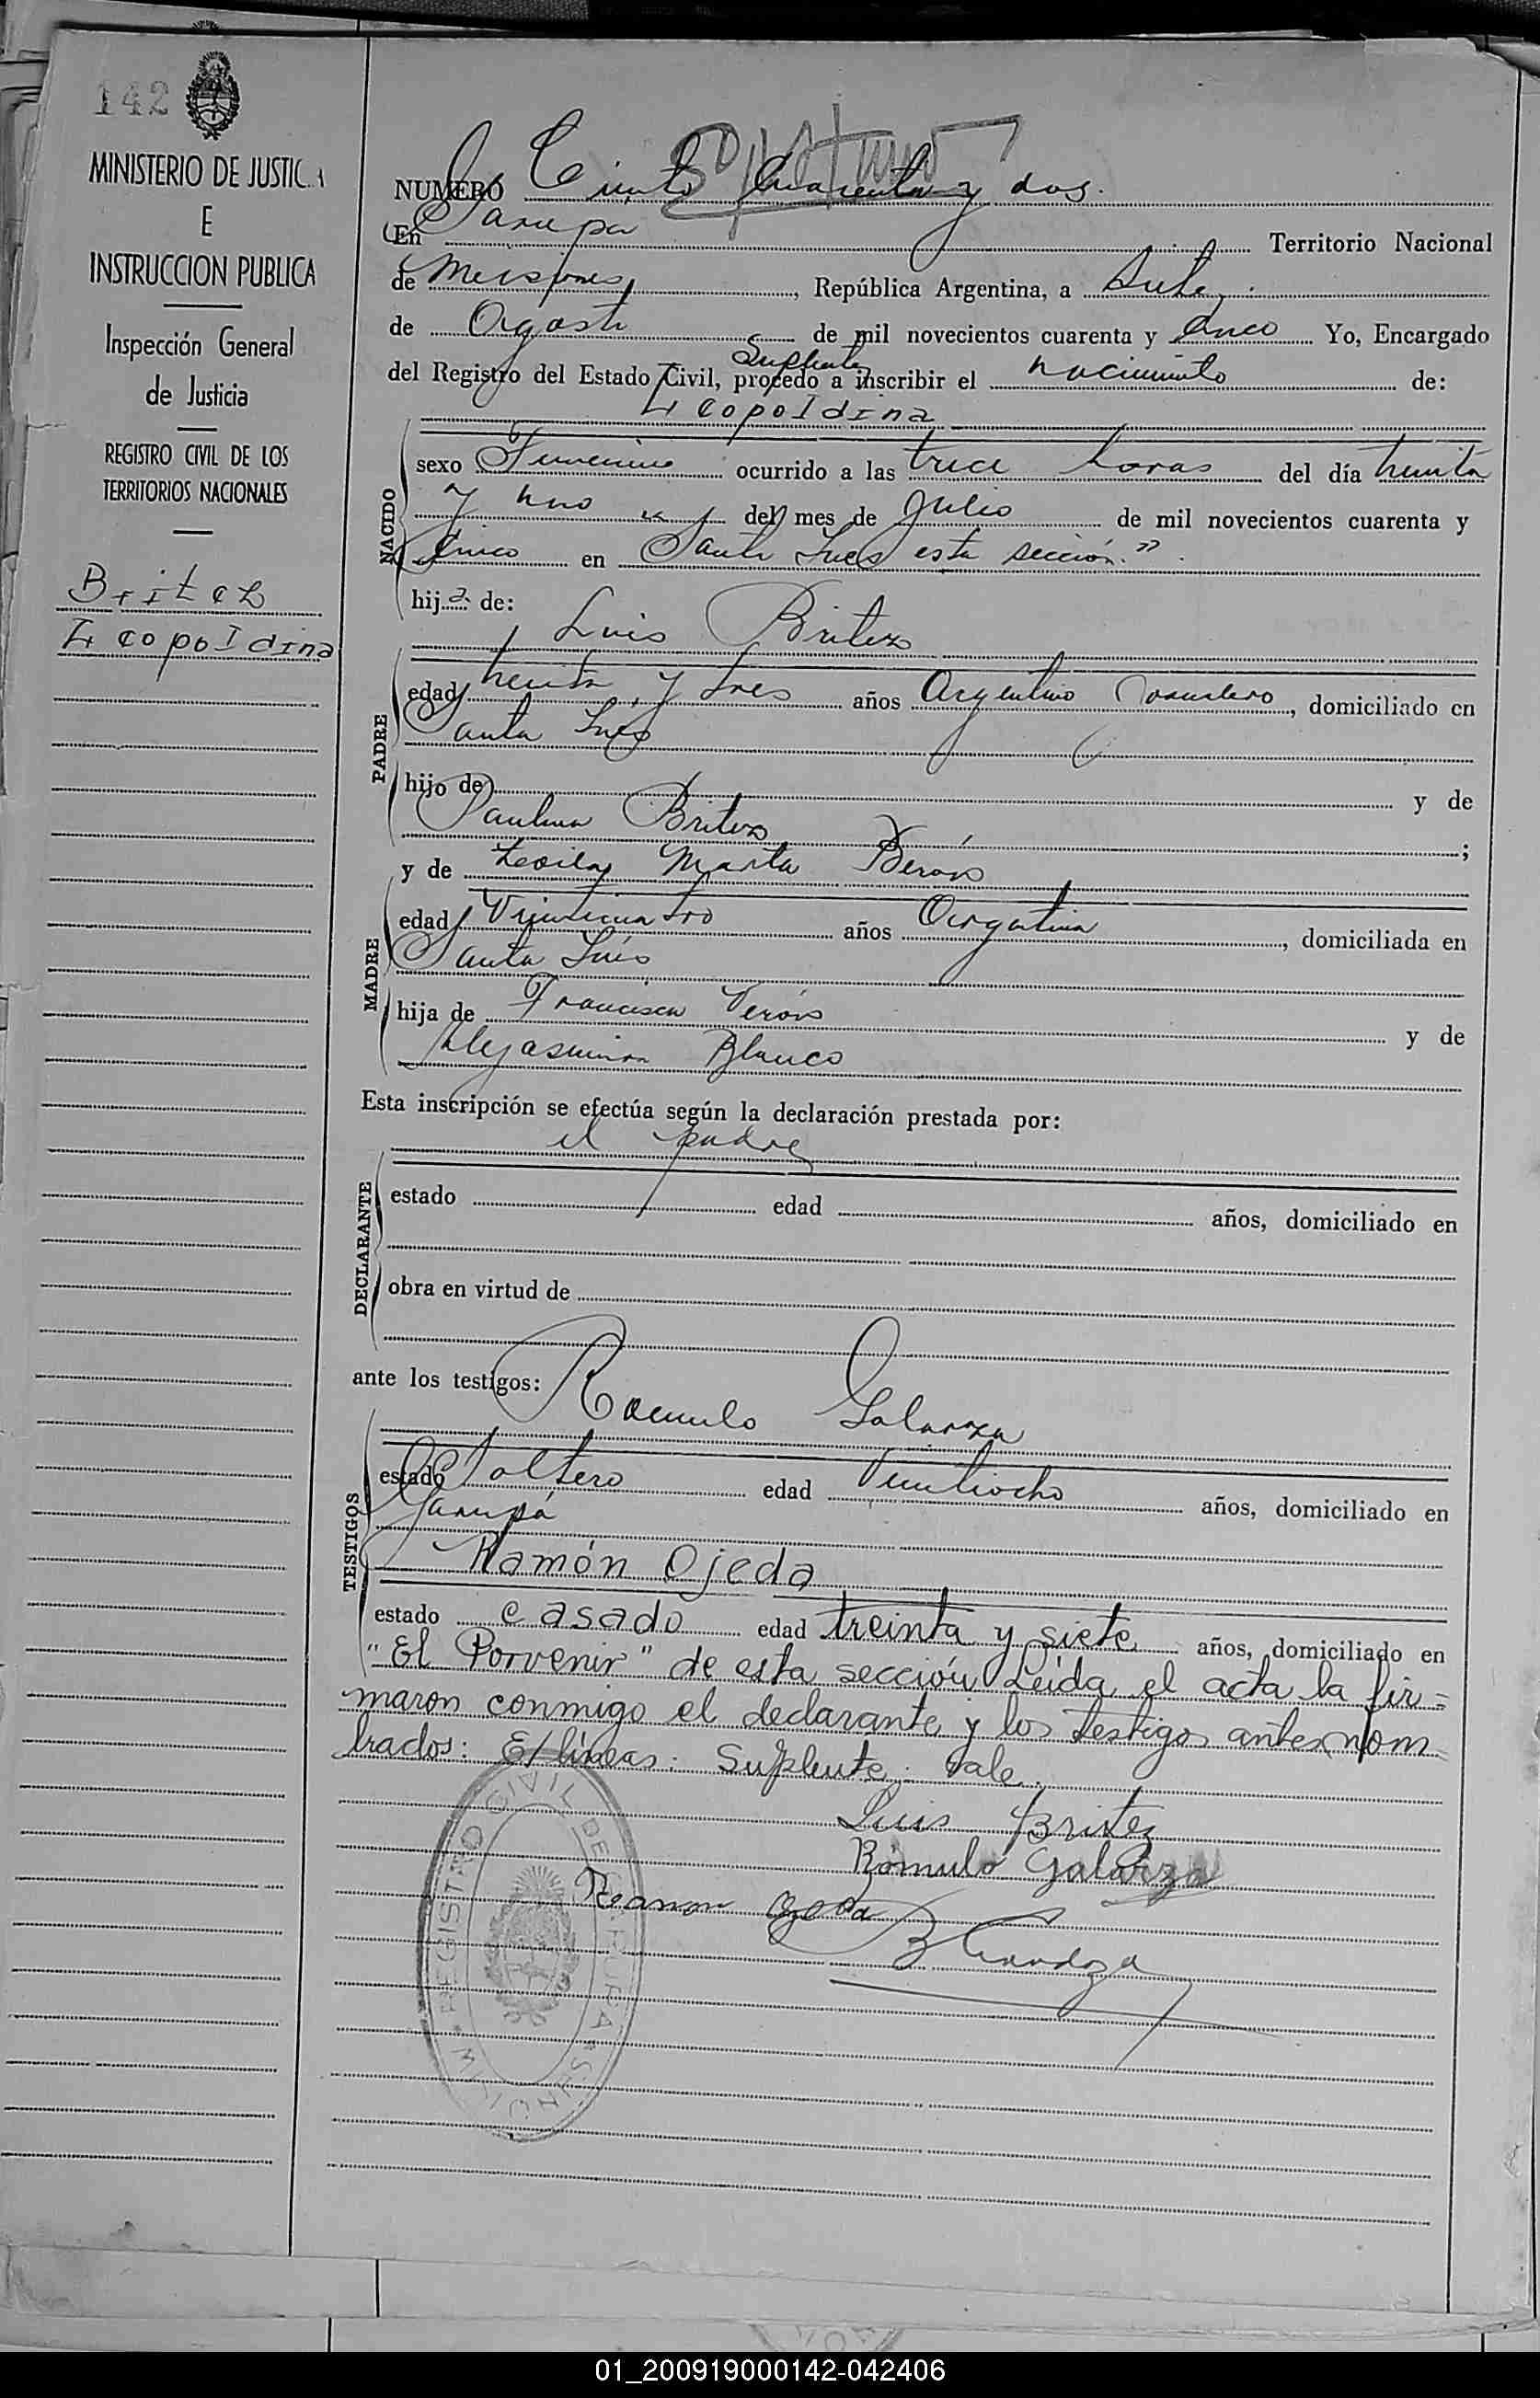 142
MINISTERIO DE JUSTICIA
E
INSTRUCCION PUBLICA
Inspección General
de Justicia
REGISTRO CIVIL DE LOS
TERRITORIOS NACIONALES
Britez
Leopoldina
NUMERO Ciento Cuarenta y dos.
En Garupa Territorio Nacional
de Misiones, República Argentina, a Siete
de Agosto de mil novecientos cuarenta y Cinco Yo, Encargado
Suplente
del Registro del Estado Civil, procedo a inscribir el nacimiento de:
Leopoldina
NACIDO
sexo Femenino ocurrido a las trece horas del día treinta
y uno del mes de Julio de mil novecientos cuarenta y
Cinco en Santa Ines esta sección."
hija de:
Luis Britez
PADRE
edad treinta y tres años Argentino Jornalero, domiciliado en
Santa Ines
hijo de y de
Paulina Britez ;
y de Marta Verón
MADRE
edad Veinticuatro años Argentina, domiciliada en
Santa Inés
hija de Francisca Verón y de
Blanco
Esta inscripción se efectúa según la declaración prestada por:
el padre
DECLARANTE
estado edad años, domiciliado en
obra en virtud de
ante los testigos:
Romulo Galarza
TESTIGOS
estado Soltero edad Veintiocho años, domiciliado en
Garupá
Ramón Ojeda
estado casado edad treinta y siete años, domiciliado en
"El Porvenir" de esta sección Leída el acta la fir=
maron conmigo el declarante y los testigos antes nom=
brados: E/líneas: Suplente: Vale.
Luis Britez
Rómulo Galarza
Ramon Ojeda
REGISTRO CIVIL DE GARUPA
MISIONES
01_200919000142-042406